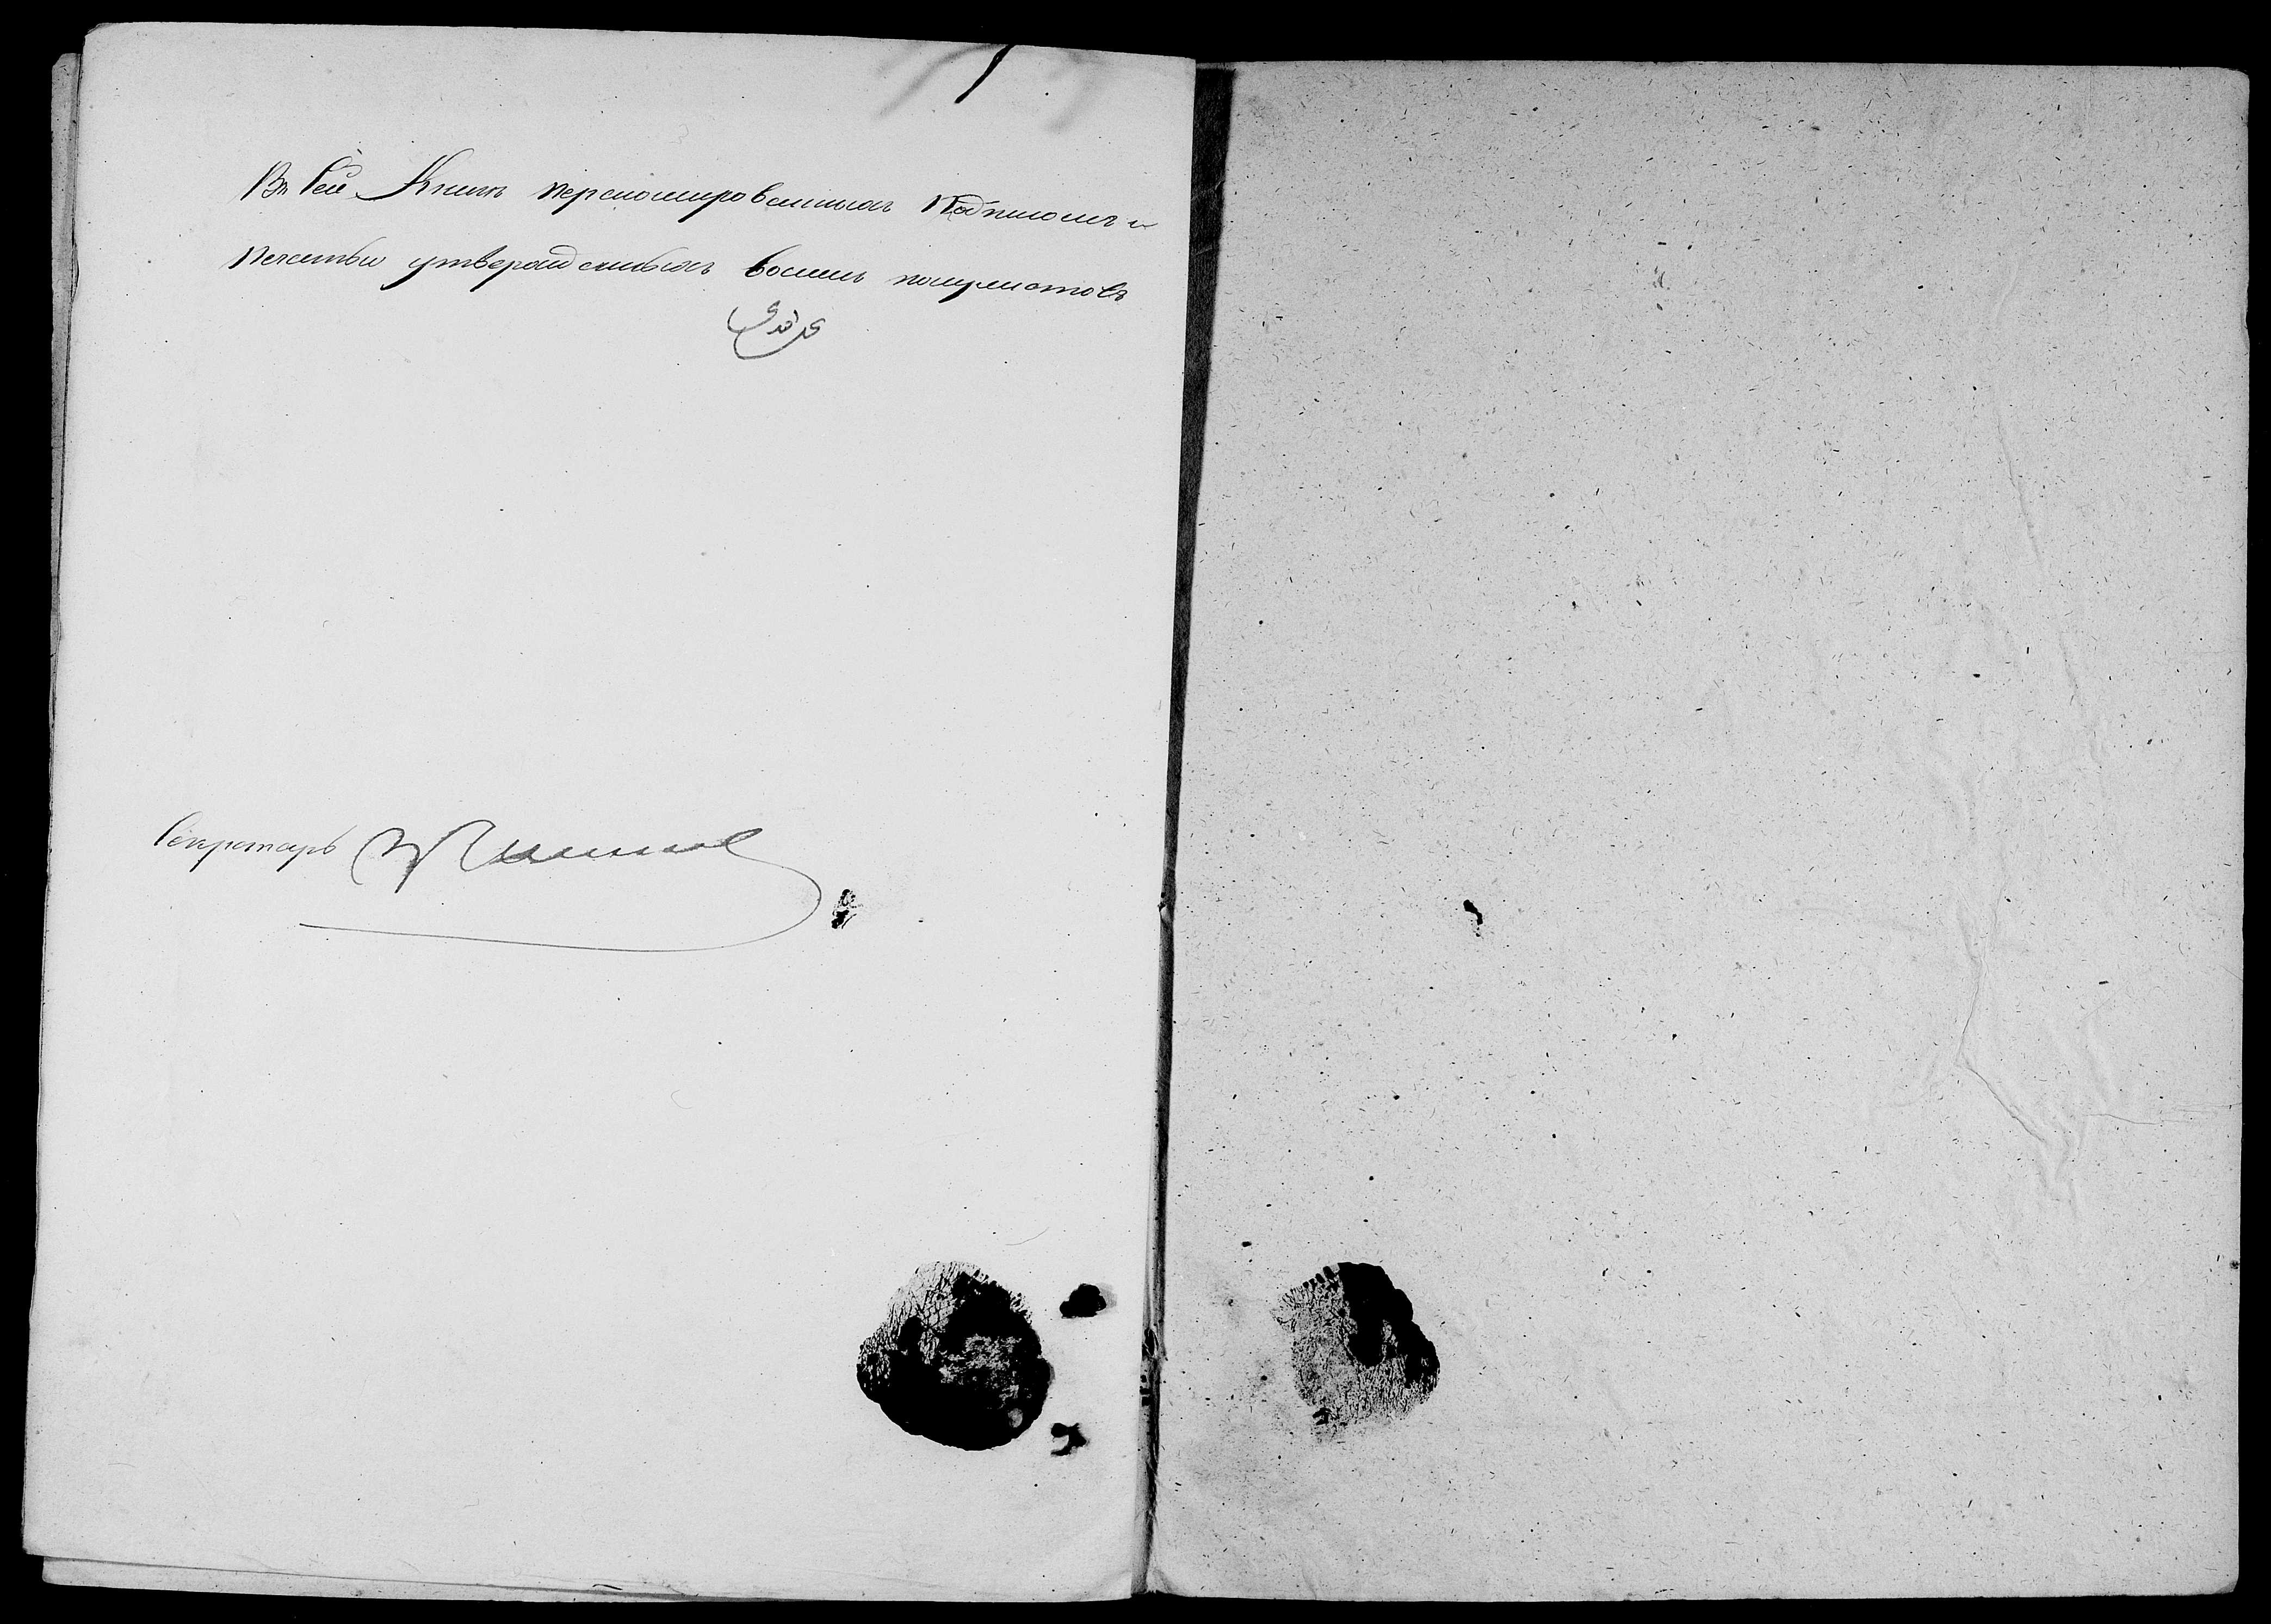 Въ Сей Книгѣ перенумерованныхъ Подписомъ и
Печатью утвержденныхъ восемь полулистовъ
Секретарь